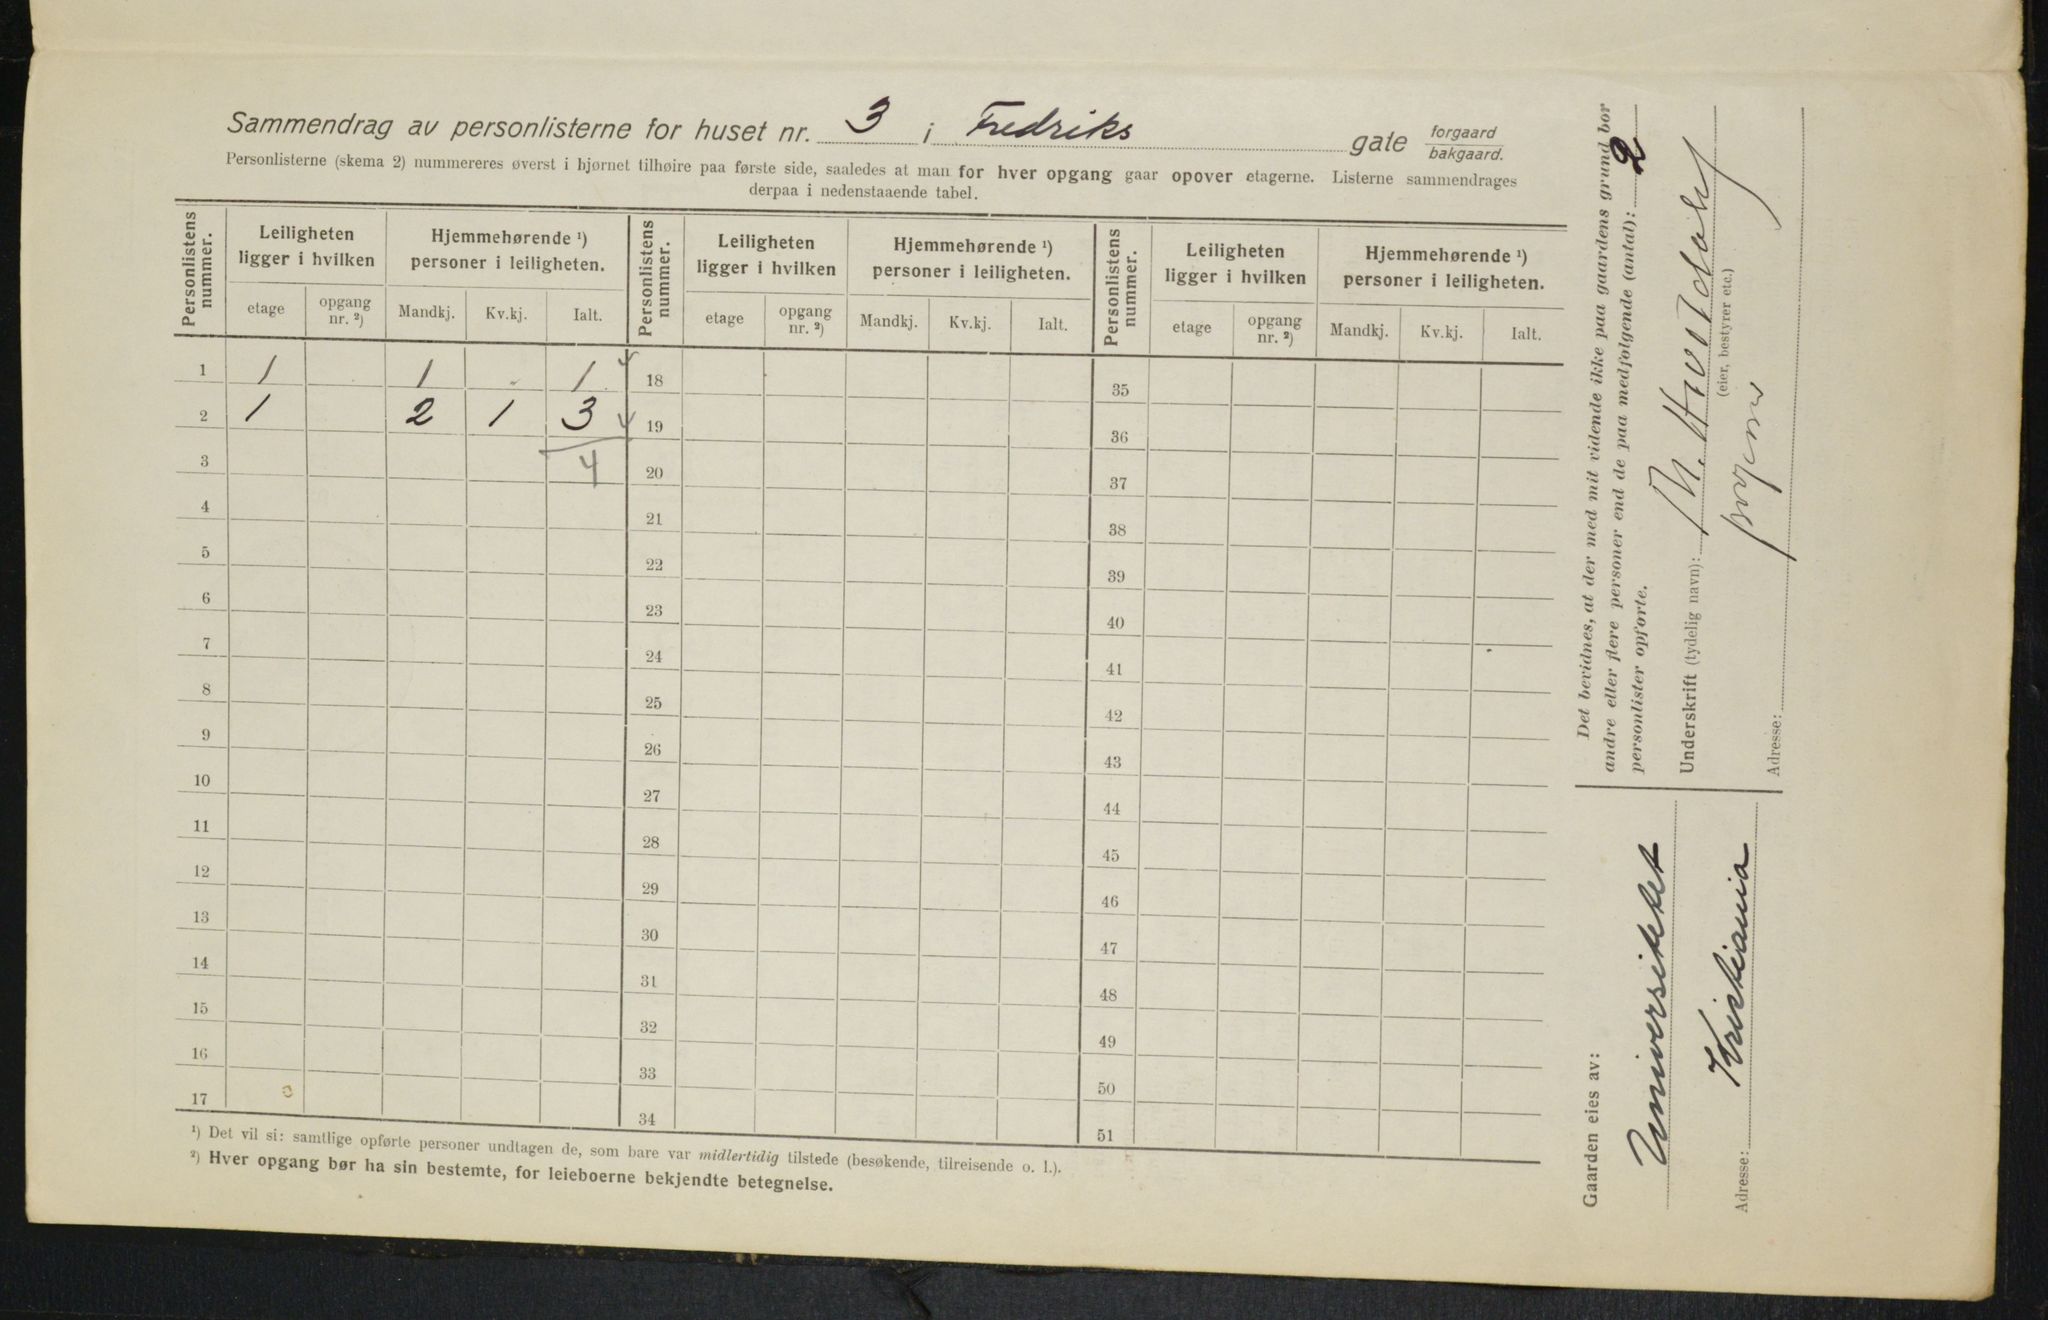 Sammendrag av personlisterne for huset nr. 3 i Fredriks gate forgaard bakgaard.
Personlisterne (skema 2) nummereres øverst i hjørnet tilhøire paa første side, saaledes at man for hver opgang gaar opover etagerne. Listerne sammendrages
derpaa i nedenstaaende tabel.
Personlistens nummer. Leiligheten ligger i hvilken Hjemmehørende ¹) personer i leiligheten. Personlistens nummer. Leiligheten ligger i hvilken Hjemmehørende ¹) personer i leiligheten. Personlistens nummer. Leiligheten ligger i hvilken Hjemmehørende ¹) personer i leiligheten.
etage opgang nr. ²) Mandkj. Kv.kj. Ialt. etage opgang nr. ²) Mandkj. Kv.kj. Ialt. etage opgang nr. ²) Mandkj. Kv.kj. Ialt.
1 1 1 1 18 35
2 1 2 1 3 19 36
3 4 20 37
4 21 38
5 22 39
6 23 40
7 24 41
8 25 42
9 26 43
10 27 44
11 28 45
12 29 46
13 30 47
14 31 48
15 32 49
16 33 50
17 34 51
¹) Det vil si: samtlige opførte personer undtagen de, som bare var midlertidig tilstede (besøkende, tilreisende o. l.).
²) Hver opgang bør ha sin bestemte, for leieboerne bekjendte betegnelse.
Det bevidnes, at der med mit vidende ikke paa gaardens grund bor
andre eller flere personer end de paa medfølgende (antal): 2
personlister opførte.
Underskrift (tydelig navn):
(eier, bestyrer etc.)
Adresse:
Gaarden eies av:
Universitetet
Kristiania
Adresse: